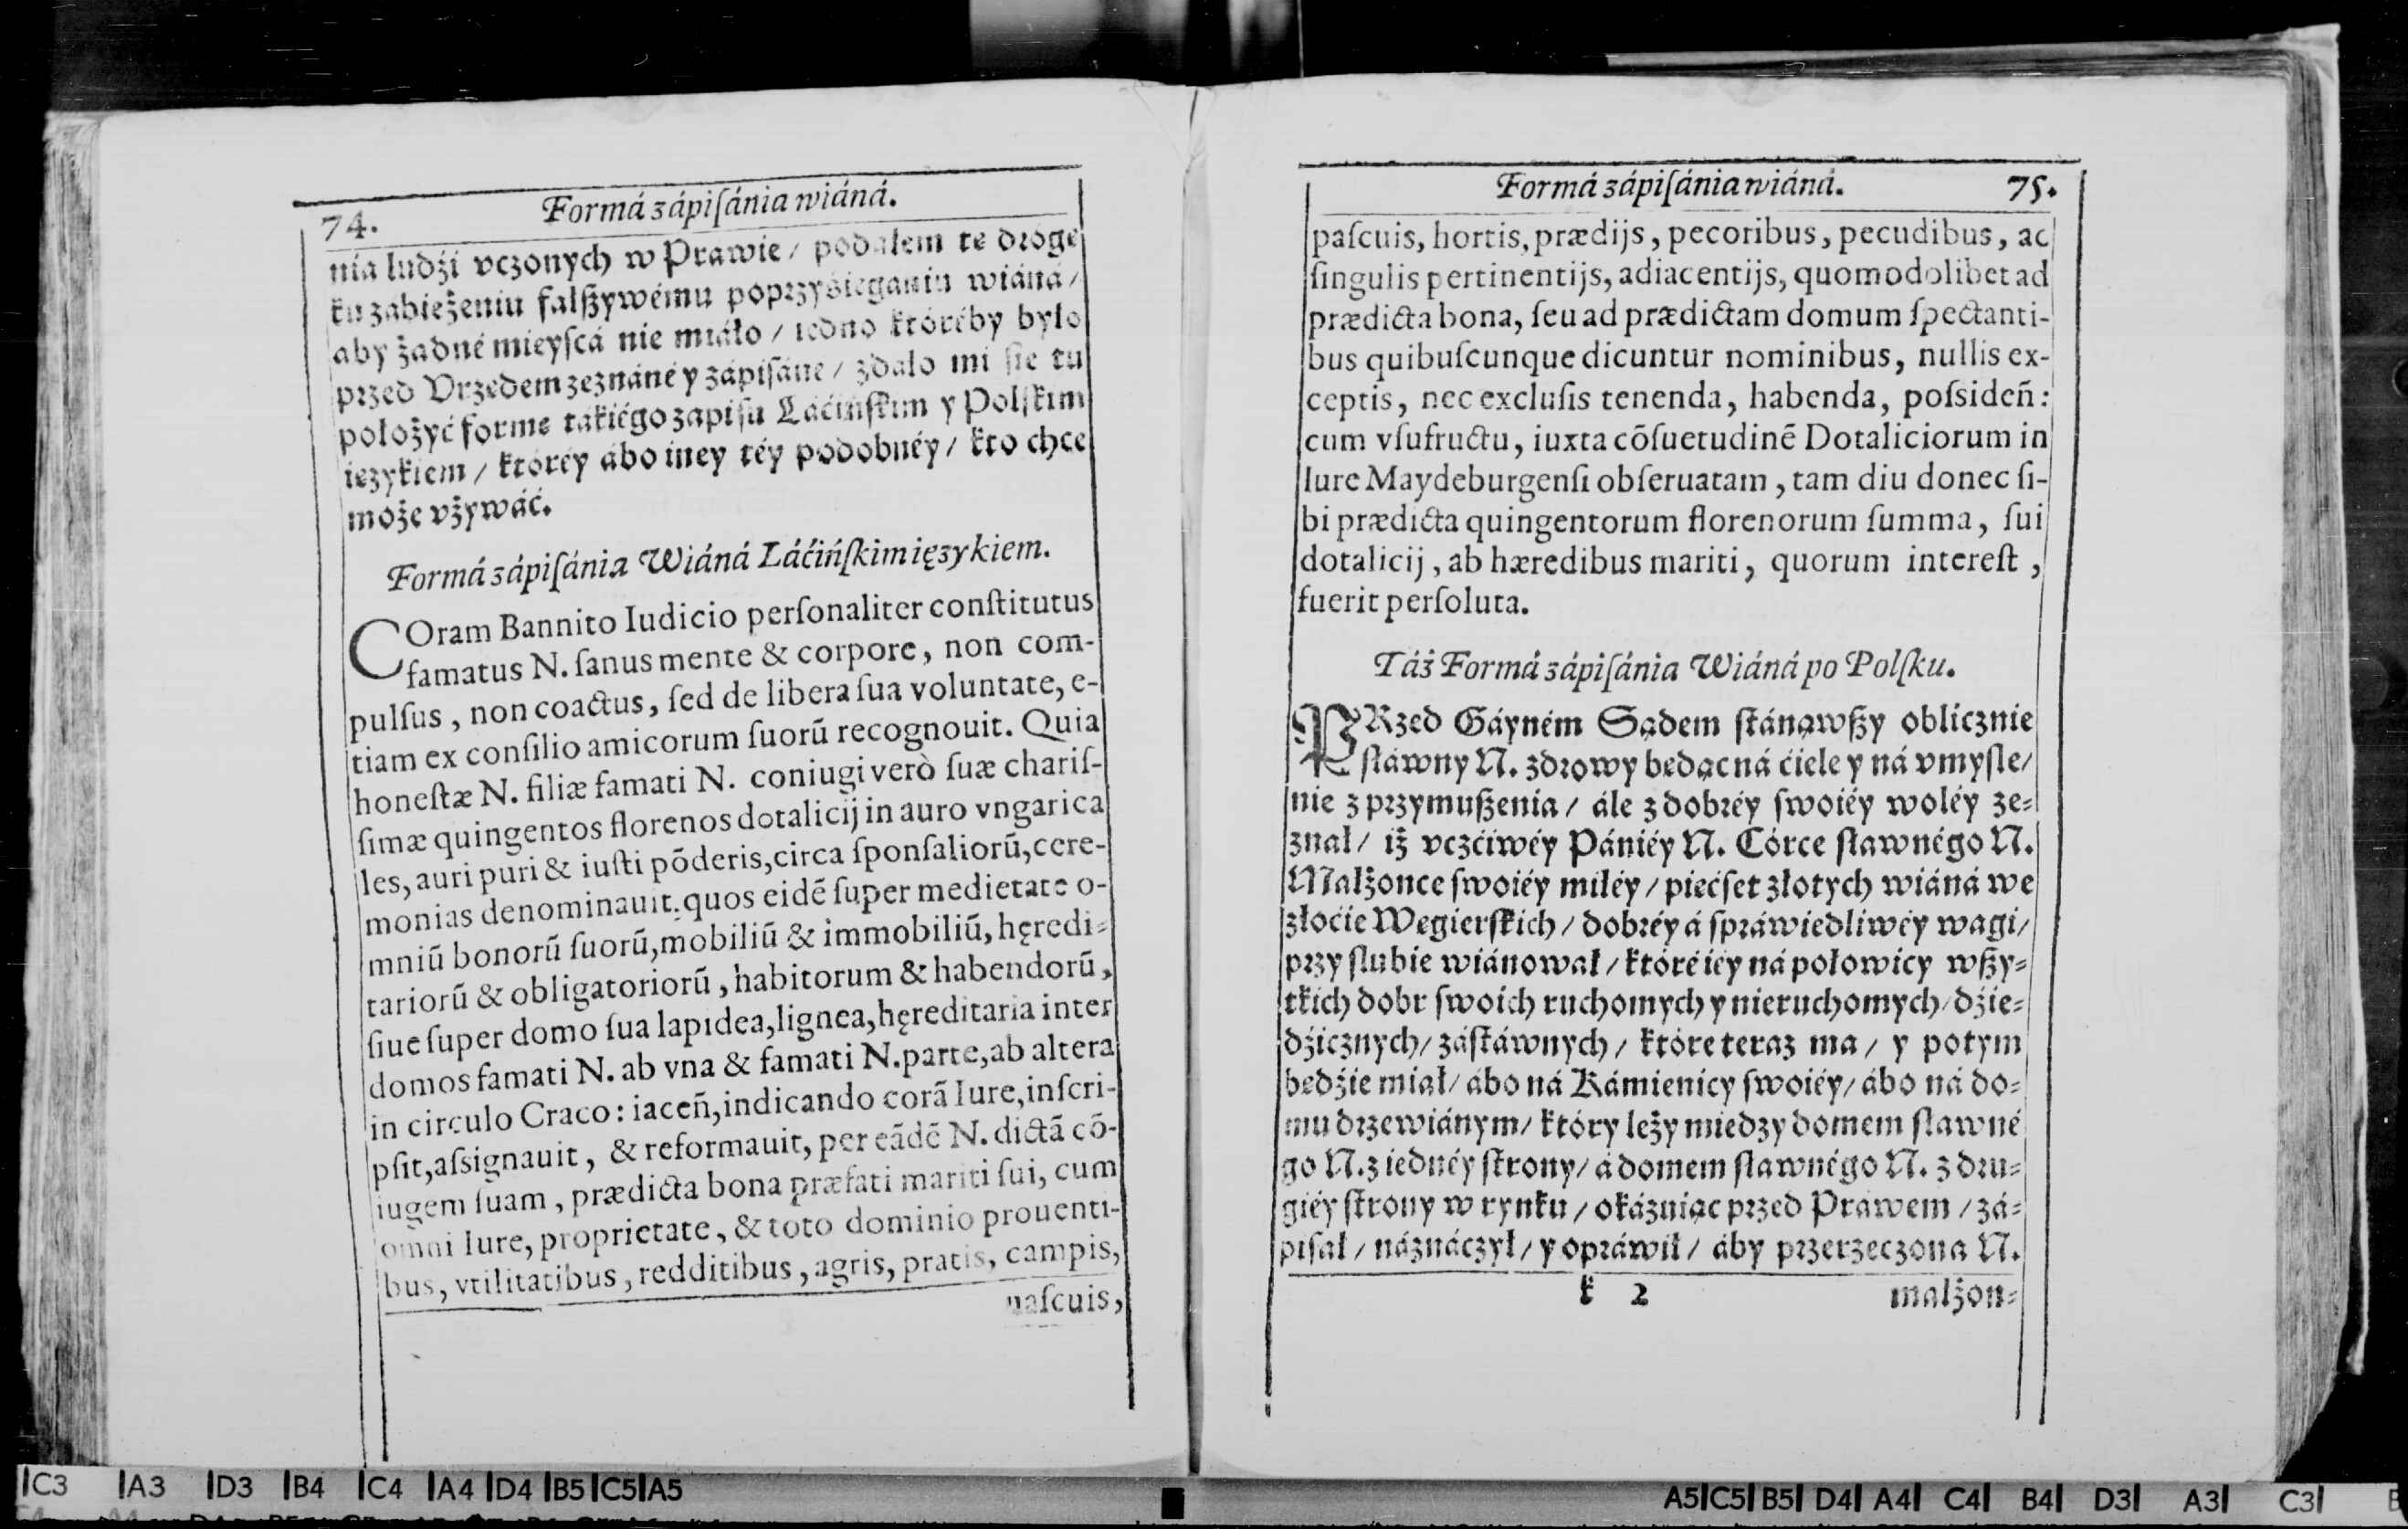 74. Formá zápiſánia wiáná.
nia ludźi vczonych w Prawie / podałem te dróge
ku zabieżeniu falßywému poprzyśieganiu wiáná /
aby żadné mieyſcá nie miáło / iedno któréby było
przed Vrzedem zeznáné y zápiſáne / zdało mi ſie tu
położyć forme tákiégo zapiſu Láćińſkim y Polſkim
iezykiem / któréy ábo iney téy podobnéy / kto chce
może vżywáć.
Formá zápiſánia Wiáná Láćińſkim ięzykiem.
COram Bannito Iudicio perſonaliter conſtitutus
famatus N. ſanus mente & corpore, non com-
pulſus, non coactus, ſed de libera ſua voluntate, e-
tiam ex conſilio amicorum ſuorũ recognouit. Quia
honeſtæ N. filiæ famati N. coniugi verò ſuæ chariſ-
ſimæ quingentos florenos dotalicij in auro vngarica
les, auri puri & iuſti põderis, circa ſponſaliorũ, cere-
monias denominauit: quos eidẽ ſuper medietate o-
mniũ bonorũ ſuorũ, mobiliũ & immobiliũ, hęredi-
tariorũ & obligatoriorũ, habitorum & habendorũ,
ſiue ſuper domo ſua lapidea, lignea, hęreditaria inter
domos famati N. ab vna & famati N. parte, ab altera
in circulo Craco: iaceñ, indicando corã Iure, inſcri-
pſit, aſsignauit, & reformauit, per eãdẽ N. dictã cõ-
iugem ſuam, prædicta bona præfati mariti ſui, cum
omni Iure, proprietate, & toto dominio prouenti-
bus, vtilitatibus, redditibus, agris, pratis, campis,
paſcuis,
Formá zápiſánia wiáná. 75.
paſcuis, hortis, prædijs, pecoribus, pecudibus, ac
ſingulis pertinentijs, adiacentijs, quomodolibet ad
prædicta bona, ſeu ad prædictam domum ſpectanti-
bus quibuſcunque dicuntur nominibus, nullis ex-
ceptis, nec excluſis tenenda, habenda, poſsideñ:
cum vſufructu, iuxta cõſuetudinẽ Dotaliciorum in
Iure Maydeburgenſi obſeruatam, tam diu donec ſi-
bi prædicta quingentorum florenorum ſumma, ſui
dotalicij, ab hæredibus mariti, quorum intereſt,
fuerit perſoluta.
Táż Formá zápiſánia Wiáná po Polſku.
PRzed Gáyném Sądem ſtánąwßy oblicznie
ſláwny N. zdrowy bedąc ná ćiele y ná vmyſle /
nie z przymußenia / ále z dobréy ſwoiéy woléy ze-
znał / iż vczćiwéy Pániéy N. Córce ſławnégo N.
Małżonce ſwoiéy miłéy / piećſet złotych wiáná we
złoćie Wegierſkich / dobréy á ſpráwiedliwéy wagi /
przy ſlubie wiánował / któré iéy ná połowicy wßy-
tkich dobr ſwoich ruchomych y nieruchomych / dźie-
dźicznych / záſtáwnych / które teraz ma / y potym
bedźie miał / ábo ná Kámienicy ſwoiéy / ábo ná do-
mu drzewiánym / który leży miedzy domem ſławné
go N. z iednéy ſtrony / á domem ſławnégo N. z dru-
giéy ſtrony w rynku / okázuiąc przed Prawem / zá-
piſał / náznáczył / y opráwił / áby przerzeczona N.
k 2 małżon-
C3 A3 D3 B4 C4 A4 D4 B5 C5 A5
A5 C5 B5 D4 A4 C4 B4 D3 A3 C3